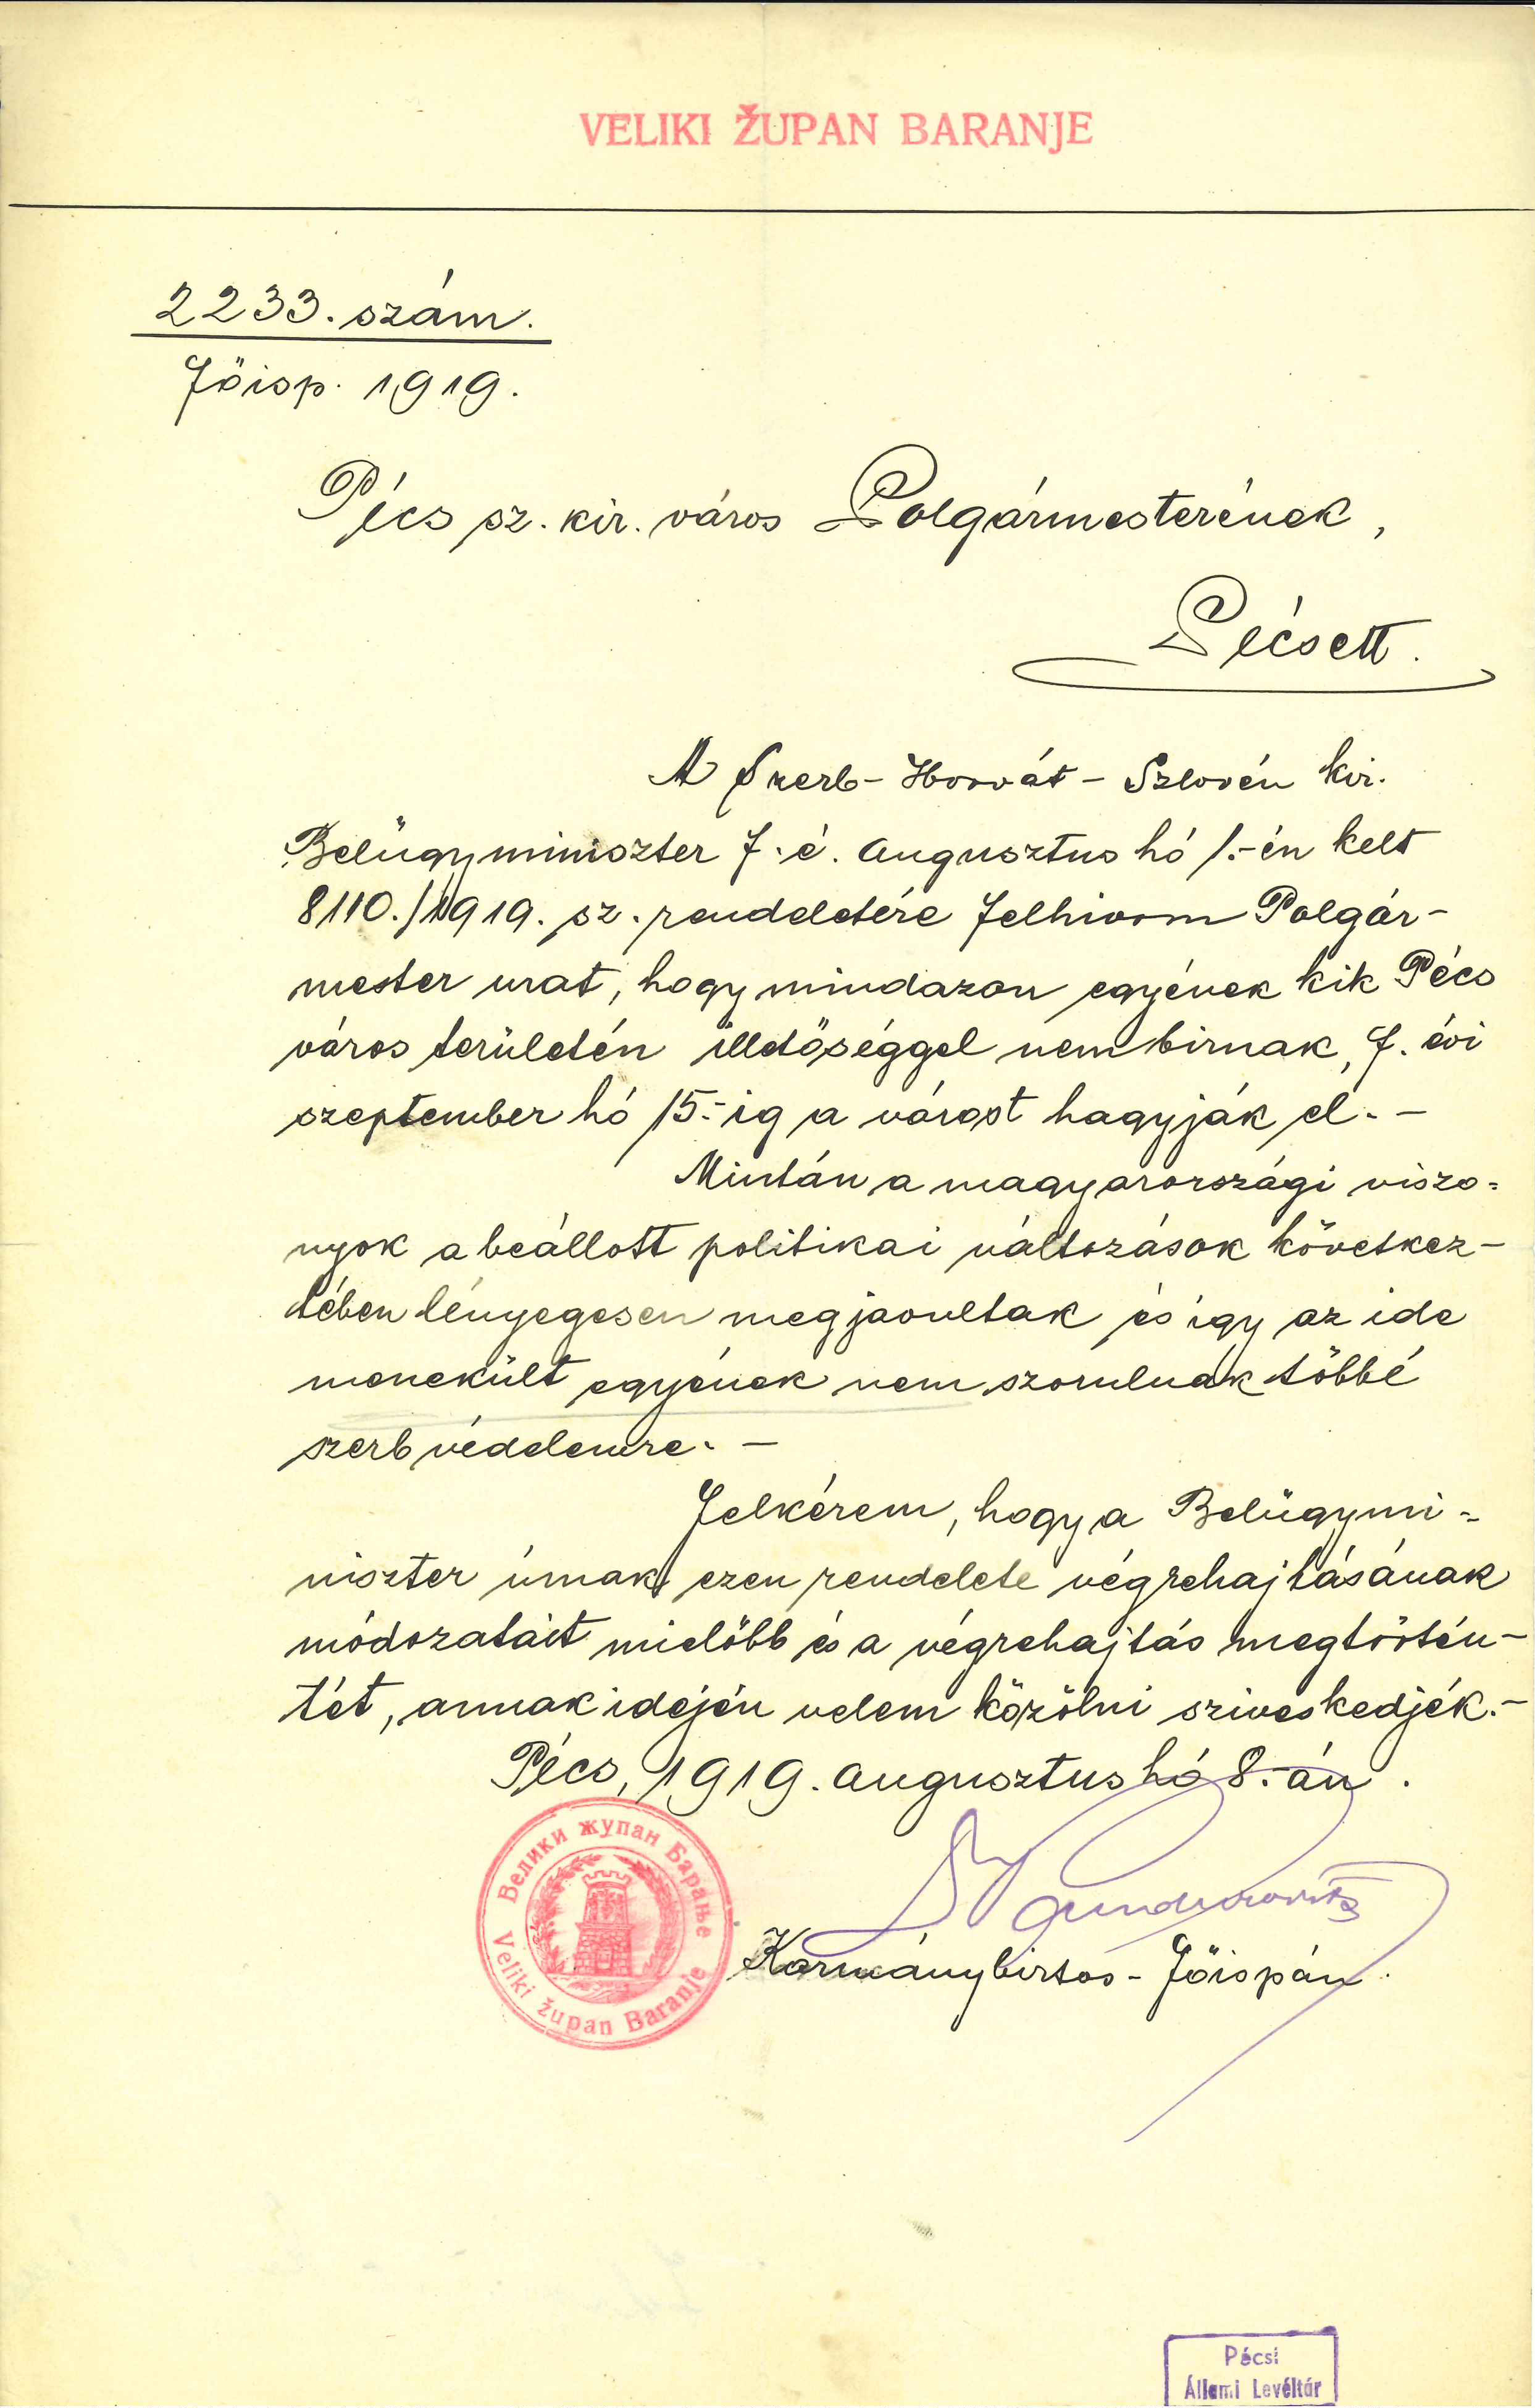 VELIKI ŽUPAN BARANJE
2233. szám.
Főisp. 1919.
Pécs sz. kir. város Polgármesterének,
Pécsett.
A Szerb-Horvát-Szlovén kir.
Belügyminiszter f. é. augusztus hó 1.-én kelt
8110./1919. sz. rendeletére felhivom Polgár-
mester urat, hogy mindazon egyének kik Pécs
város területén illetőséggel nem birnak, f. évi
szeptember hó 15.-ig a várost hagyják el. -
Mintán a magyarországi viszo-
nyok a beállott politikai változások következ-
tében lényegesen megjavultak és igy az ide
menekült egyének nem szorulnak többé
szerb védelemre. -
Felkérem, hogy a Belügymi-
niszter úrnak ezen rendelete végrehajtásának
módozatait mielőbb és a végrehajtás megtörtén-
tét, annak idején velem közölni sziveskedjék.-
Pécs, 1919. augusztus hó 8.-án.
Велики жупан Барање
Veliki župan Baranje
Kormánybiztos-Főispán.
Pécsi
Állami Levéltár